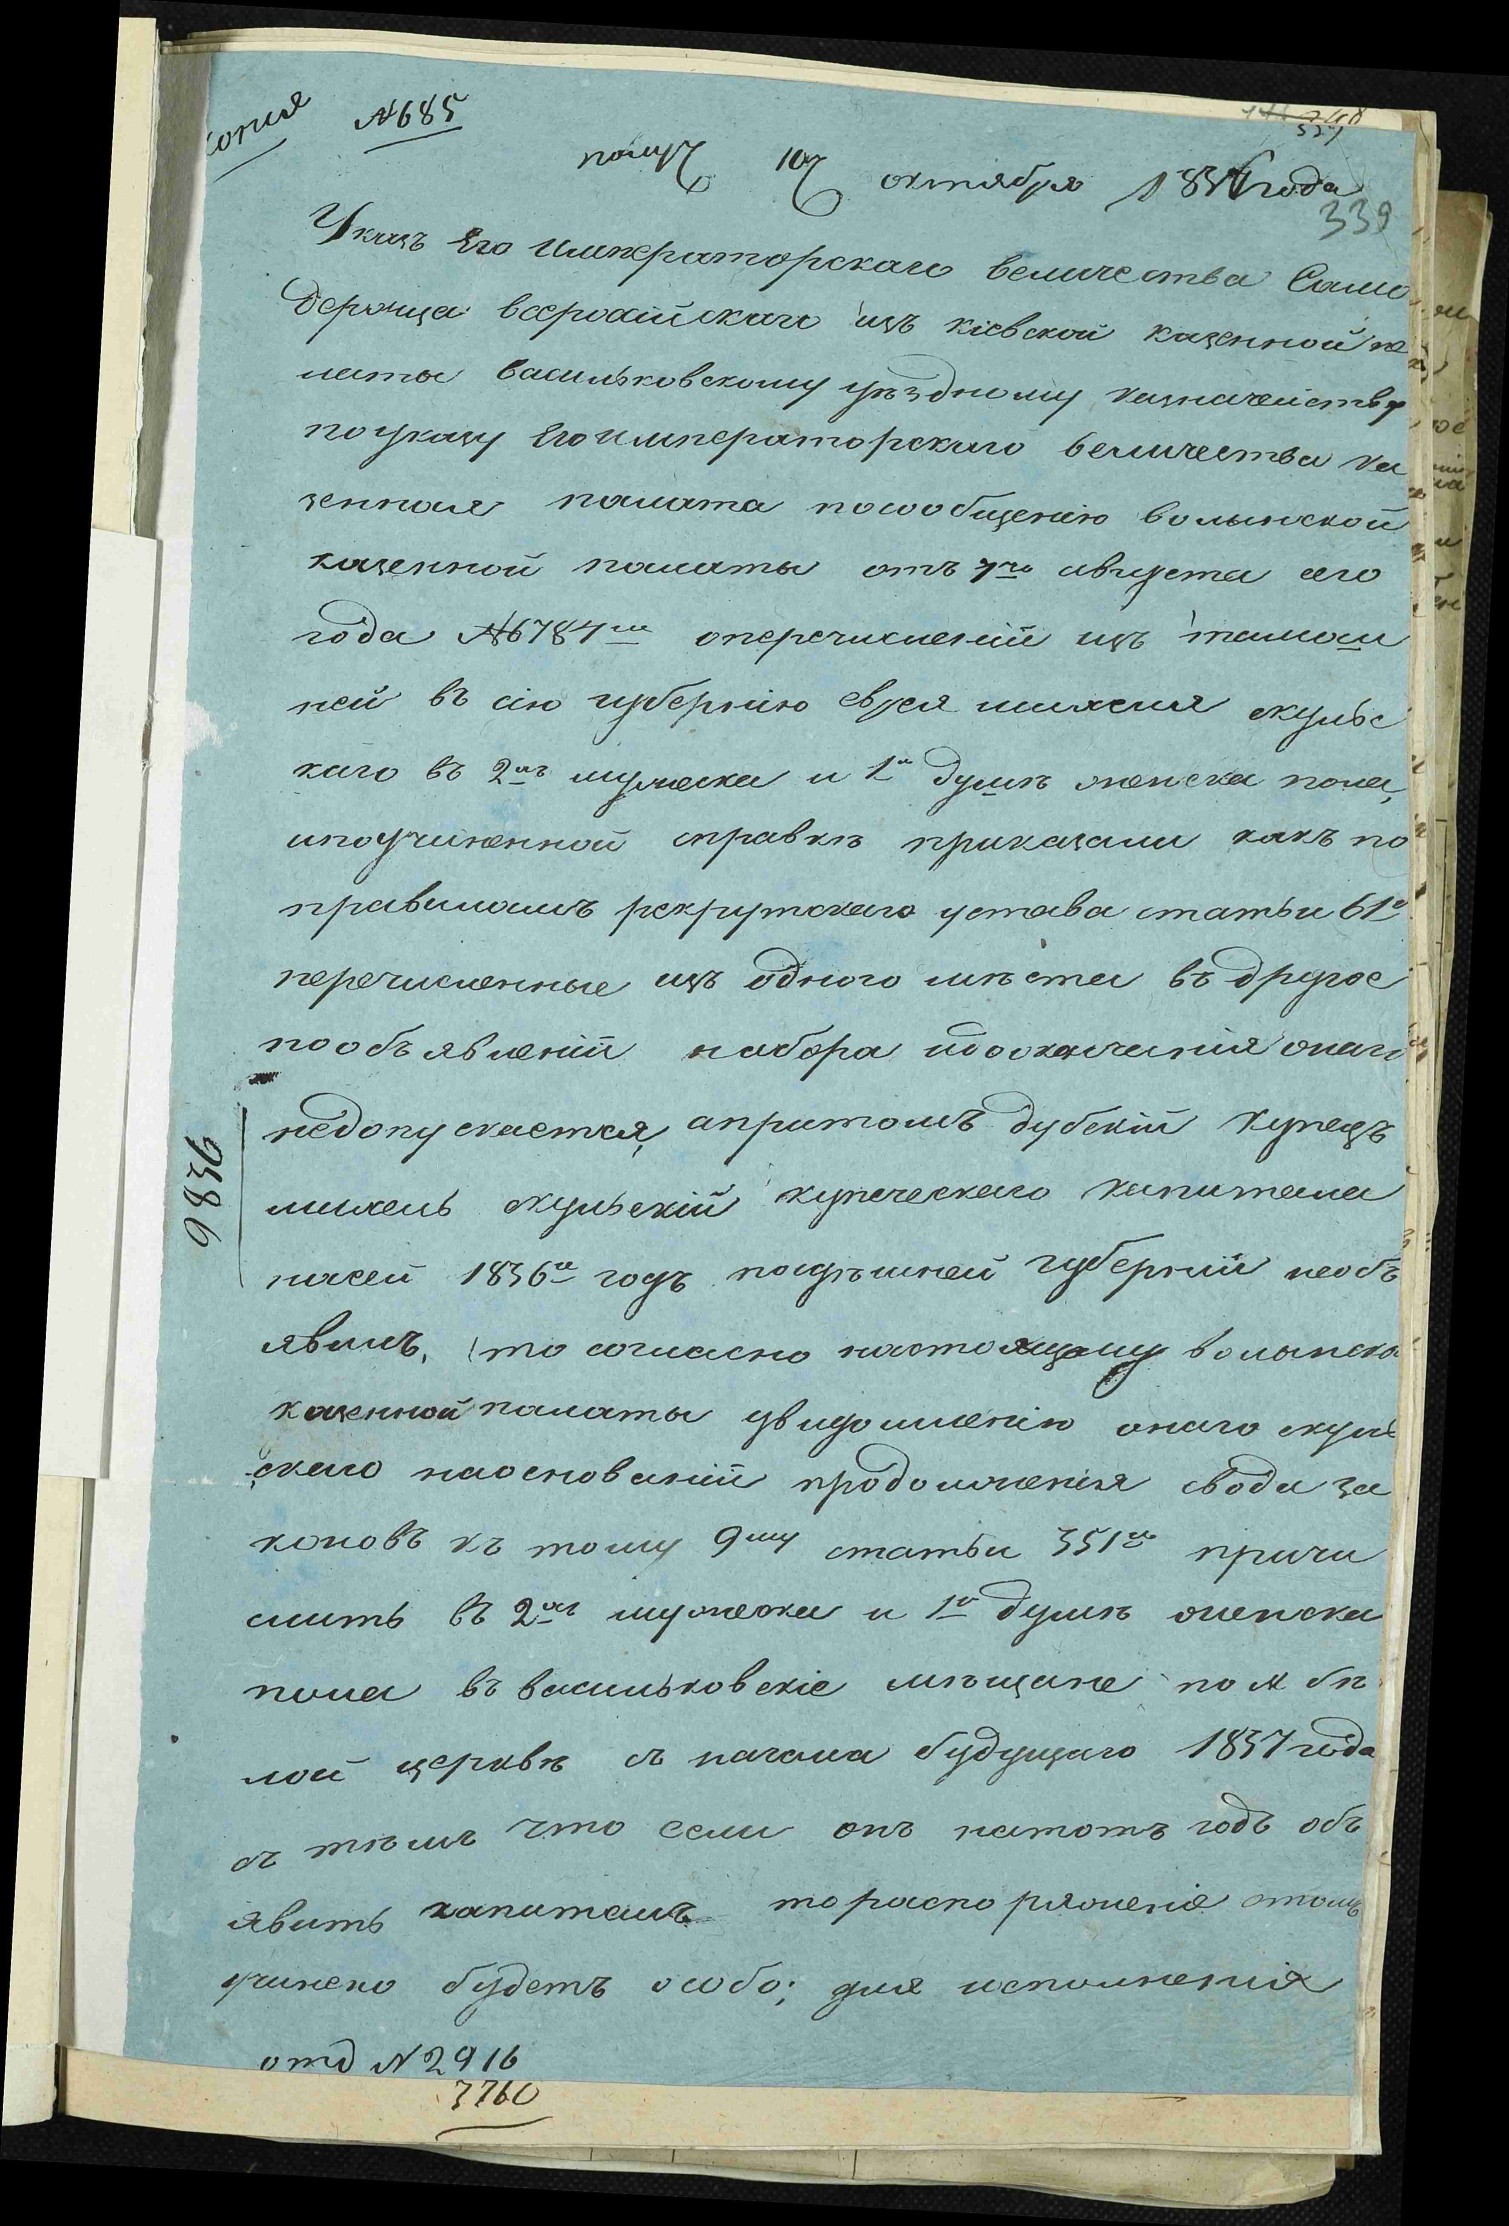 копия №685
148 527
получ 10 октября 1836 года
339
Указъ Его Императорскаго величества Само
держца всеросiйскаго изъ кiевской казенной па
латы васильковскому уѣздному казначейству
по указу Его императорскаго величества ка
зенная палата посообщенiю волынской
казенной палаты отъ 7го августа сего
года №6784м оперечисленiи изъ тамош
ней въ сiю губернiю еврея михеля скульс
каго въ 2хъ мужеска и 1й душѣ женска пола,
ипоучиненной справкѣ приказали какъ по
правиламъ рекрутскаго устава статьи 61й
перечисленные изъ одного мѣста въ другое
пообъявленiи набора доокончанiя онаго
недопускается, апритомъ дубскiй купецъ
михель скульскiй купеческаго капитала
насей 1836й годъ поздѣшней губернiи необъ
явилъ, то согласно настоящему волынско
казенной палаты увидомленiю онаго скуль
скаго наоснованiи продолженiя свода за
коновъ къ тому 9му статьи 351й причи
слить въ 2хъ мужеска и 1й душѣ женска
пола въ васильковскiе мѣщане по м бѣ
лой церквѣ съ начала будущаго 1837 года
съ тѣмъ что если онъ натотъ годъ объ
явитъ капиталъ то распоряженiе отомъ
учинено будетъ особо; для исполненiя
9836
отд №2916
3760